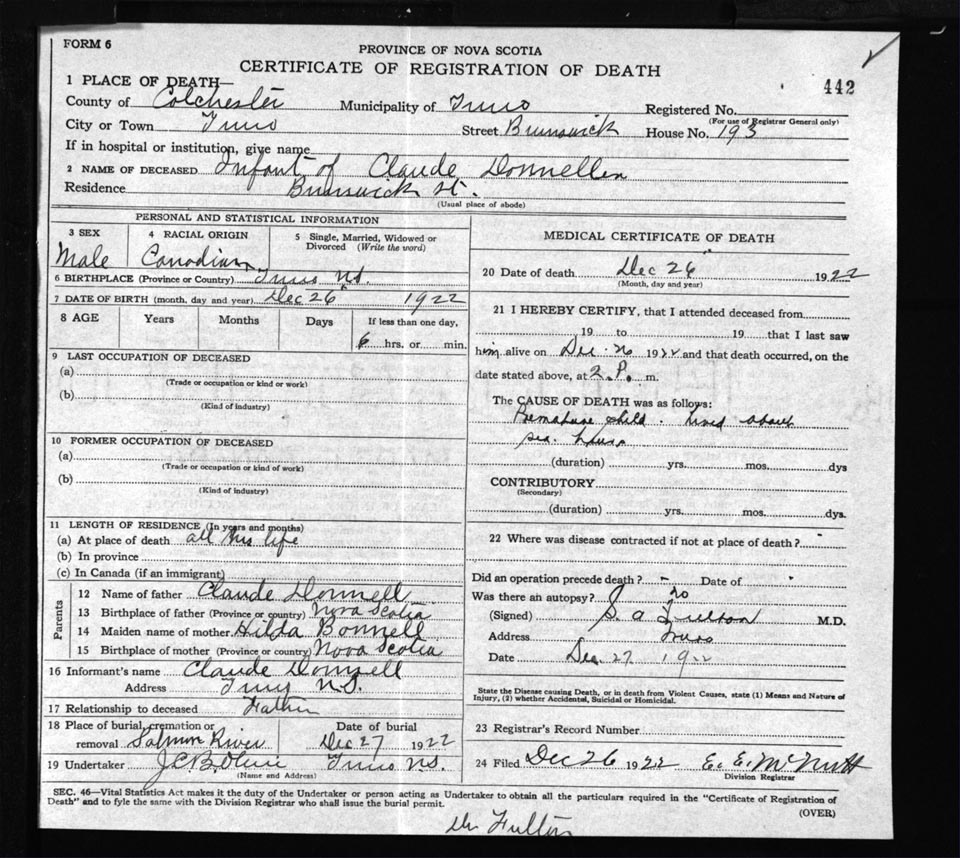 FORM 6
PROVINCE OF NOVA SCOTIA
CERTIFICATE OF REGISTRATION OF DEATH
442
1 PLACE OF DEATH—
County of Colchester Municipality of Truro Registered No.
(For use of Registrar General only)
City or Town Truro Street Brunswick House No. 193
If in hospital or institution, give name
2 NAME OF DECEASED Infant of Claude Donnell
Residence Brunswick St.
(Usual place of abode)
PERSONAL AND STATISTICAL INFORMATION
3 SEX 4 RACIAL ORIGIN 5 Single, Married, Widowed or Divorced (Write the word)
Male Canadian
6 BIRTHPLACE (Province or Country) Truro N.S.
7 DATE OF BIRTH (month, day and year) Dec 26 1922
8 AGE Years Months Days If less than one day,
6 hrs. or min.
9 LAST OCCUPATION OF DECEASED
(a)
(Trade or occupation or kind or work)
(b)
(Kind of industry)
10 FORMER OCCUPATION OF DECEASED
(a)
(Trade or occupation or kind of work)
(b)
(Kind of industry)
11 LENGTH OF RESIDENCE (In years and months)
(a) At place of death all his life
(b) In province
(c) In Canada (if an immigrant)
Parents
12 Name of father Claude Donnell
13 Birthplace of father (Province or country) Nova Scotia
14 Maiden name of mother Hilda Bonnell
15 Birthplace of mother (Province or country) Nova Scotia
16 Informant's name Claude Donnell
Address Truro N.S.
17 Relationship to deceased Father
18 Place of burial, cremation or Date of burial
removal Salmon River Dec 27 1922
19 Undertaker Truro N.S.
(Name and Address)
MEDICAL CERTIFICATE OF DEATH
20 Date of death Dec 26 1922
(Month, day and year)
21 I HEREBY CERTIFY, that I attended deceased from
19 to 19 that I last saw
him alive on Dec. 26 1922 and that death occurred, on the
date stated above, at 2.P. m.
The CAUSE OF DEATH was as follows:
Premature child. Lived about
six hours
(duration) yrs. mos. dys
CONTRIBUTORY
(Secondary)
(duration) yrs. mos. dys.
22 Where was disease contracted if not at place of death?
Did an operation precede death? - Date of
Was there an autopsy? no
(Signed) S. A. Fulton M.D.
Address Truro
Date Dec 27 192
State the Disease causing Death, or in death from Violent Causes, state (1) Means and Nature of
Injury, (2) whether Accidental, Suicidal or Homicidal.
23 Registrar's Record Number
24 Filed Dec 26 1922 E. E. McNutt
Division Registrar
SEC. 46—Vital Statistics Act makes it the duty of the Undertaker or person acting as Undertaker to obtain all the particulars required in the "Certificate of Registration of
Death" and to fyle the same with the Division Registrar who shall issue the burial permit.
(OVER)
Dr Fulton